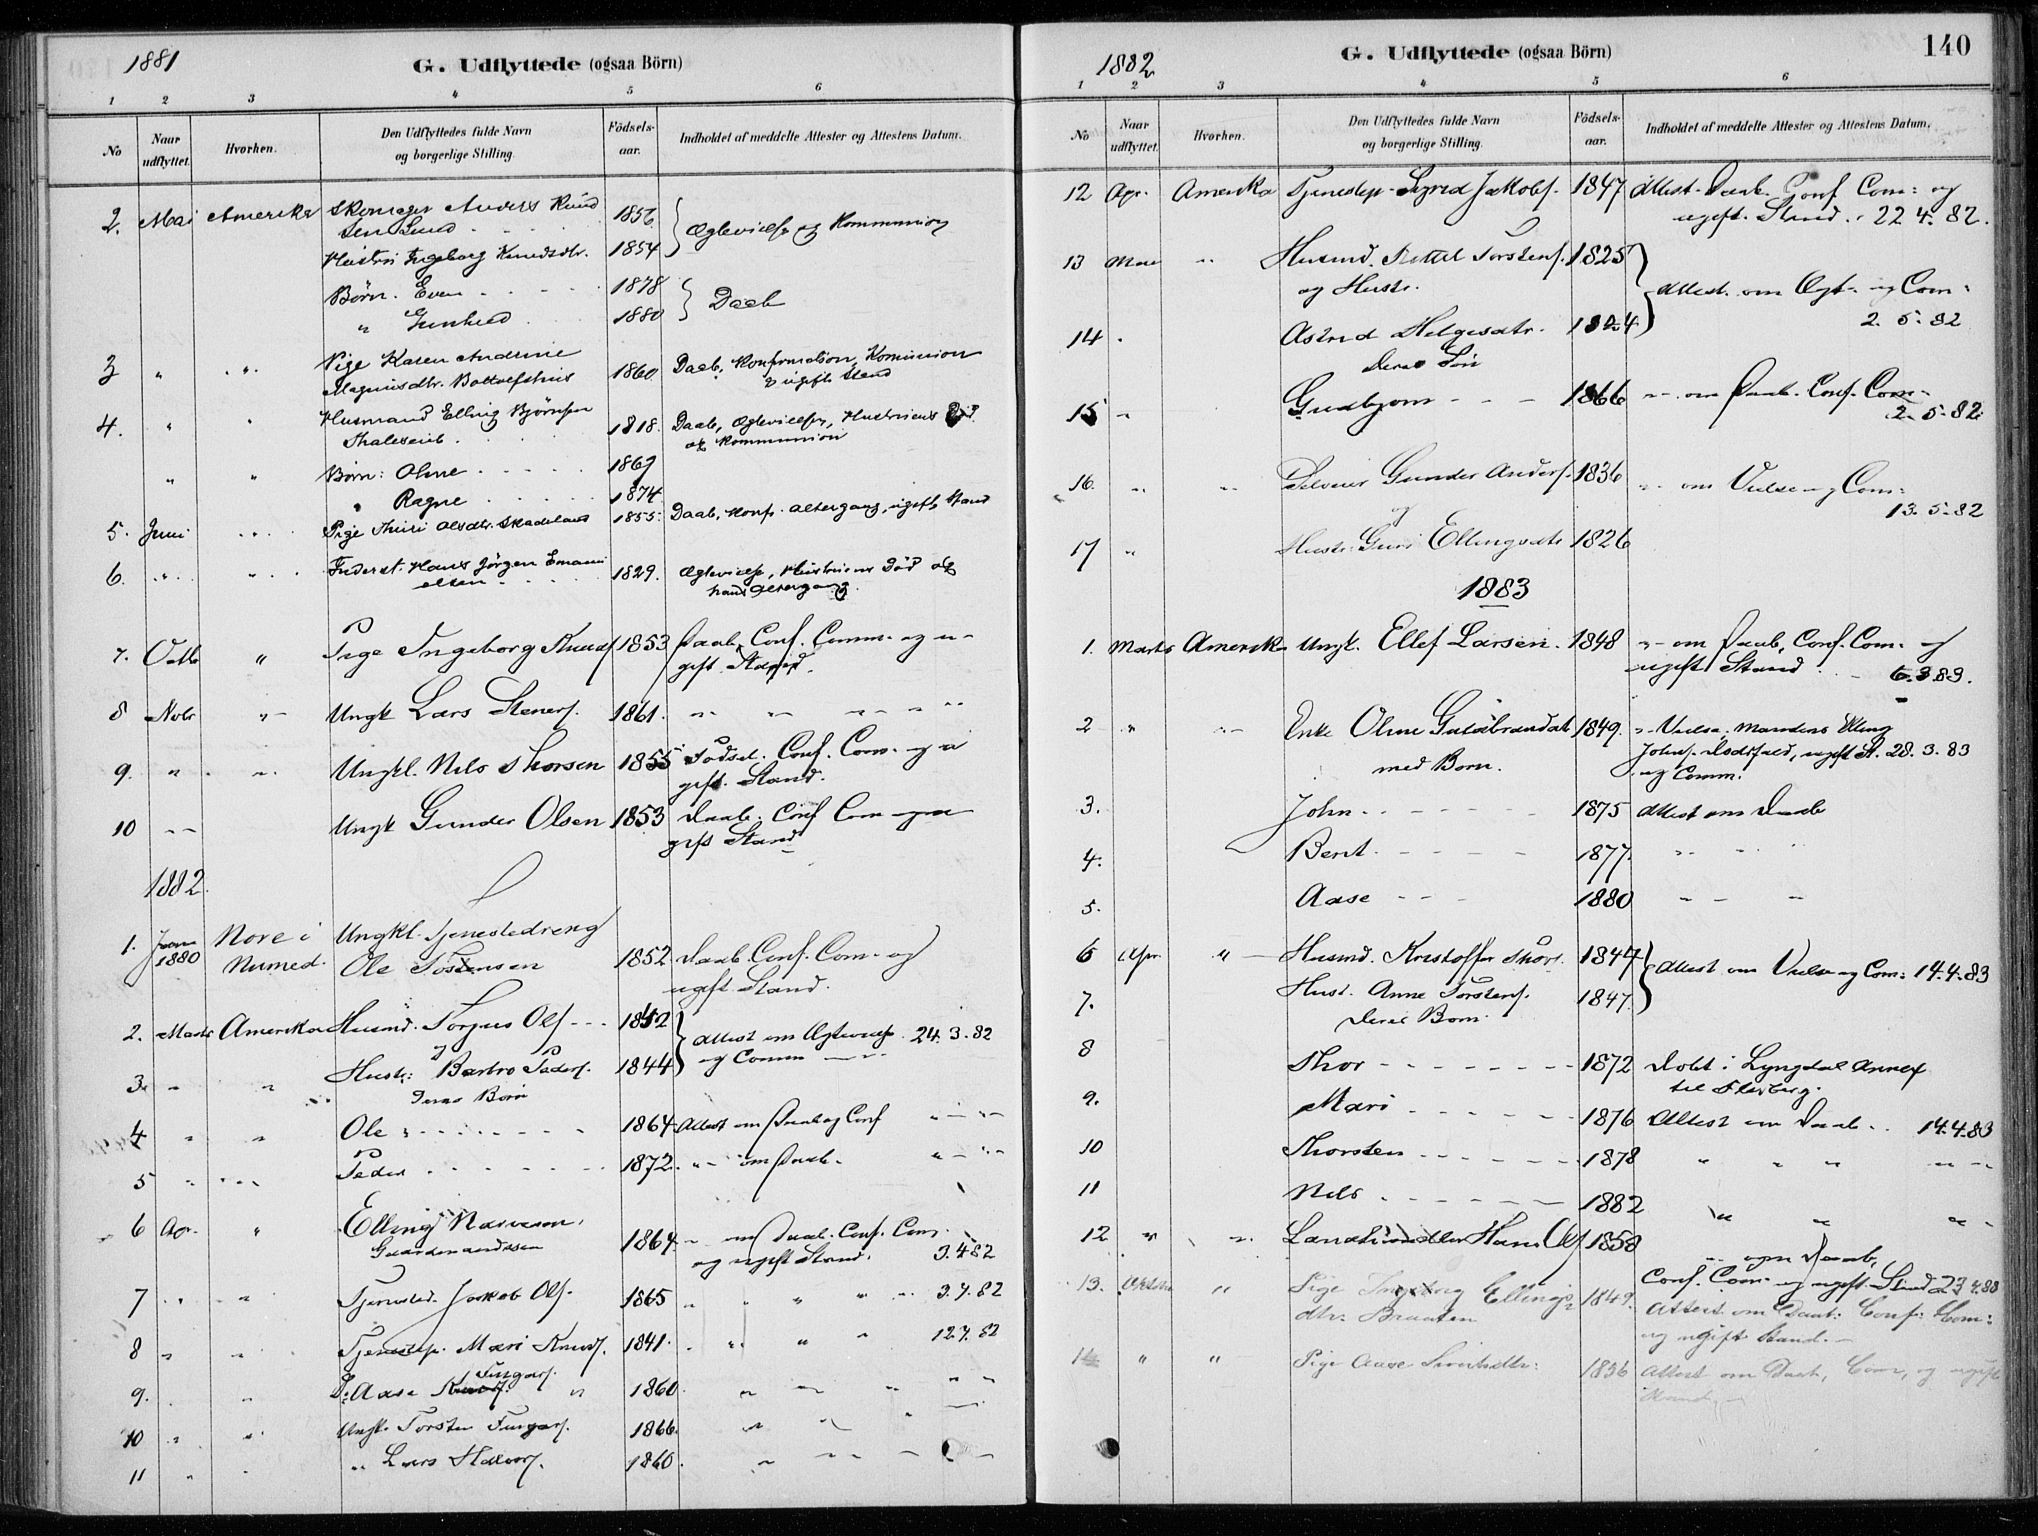 1881
G. Udflyttede (ogsaa Börn)
1 2 3 4 5 6
No Naar udflyttet. Hvorhen. Den Udflyttedes fulde Navn og borgerlige Stilling. Födsels-aar. Indholdet af meddelte Attester og Attestens Datum.
2. Mai Amerika Skomager Anders Knud 1856
sen
Hustru Ingeborg Knudsdtr. 1854 Ægtevielse og Kommunion
Börn. Even 1878
" Gunhild 1880 Daab
3 " " Pige Karen Andrine
Magnusdtr. 1860 Daab, Konfirmation, Komunion
& ugift Stand
4. " " Husmand Elling Bjørnsen
1818. Daab, Ægtevielse, Hustruens Død
og Kommunion
" " Børn: Oline 1869
" Ragne 1874
5. Juni " Pige Thuri Olsdtr. Skadeland 1855. Daab, Konf. Altergang, ugift Stand
6. " " Inderst. Hans Jørgen Emanu
elsen 1829. Ægtevielse, Hustruens Död og
hans Altergang.
7. Octb " Pige Ingeborg Knuds 1853 Daab, Conf. Comm. og u-
gift Stand.
8 Nobr " Ungk Lars Steners. 1861. " " " " "
9. " " Ungkl. Nils Thorsen 1855 Födsel. Conf. Com. og u
gift Stand.
10 " Ungk Gunder Olsen 1853 Daab. Conf Com og u
gift Stand
1882.
1. Janr 1880 Nore i Numed. Ungkl. Tjenestedreng
Ole Tostensen 1852 Daab. Conf. Com. og
ugift Stand.
2. Marts Amerika Husmd. Torgus Ols 1842
og Attest om Ægtevielse 24.3.82
3. " " Hustr: Barbro Peders. 1844 og Comm
Deres Børn
4 " " Ole 1864 Attest om Daab og Conf " "
5 " " Peder 1872. " om Daab. " "
6 Apr. " Elling Narveson,
Gaardmandssøn 1864. " om Daab. Conf. Com.
og ugift Stand. 3.4 82
7 " " Tjenested. Jakob Ols. 1865 " " " " 3.4.82
8 " " Tjenestep. Mari Knuds. 1841. " " " " 12.4.82
9. " " D: Aase Fingars. 1860 " " " " "
10 " " Ungk. Torsten Fingars. 1866. " "
11 " " " Lars Halvors. 1860. " " " "
1882
G. Udflyttede (ogsaa Börn)
140
1 2 3 4 5 6
No Naar udflyttet. Hvorhen. Den Udflyttedes fulde Navn og borgerlige Stilling. Födsels-aar. Indholdet af meddelte Attester og Attestens Datum.
12 Apr. Amerika Tjenestep. Sigrid Jakobs. 1847 Attest. Daab. Conf Com: og
ugift Stand. 22 4. 82.
13 Mai " Husmd. Kittel Torstens. 1825
og Hustr. Attest om Ægt. og Com.
2. 5. 82
14 " Astrid Helgesdtr. 1824
Deres Søn
15 " Gudbjørn 1866 " om Daab. Conf. Com.
2. 5. 82
16. " " Gunder Anders. 1836 " om Vielse og Com.
og 13. 5. 82
17 " Hustr. Guri Ellingsdtr 1826
1883
1. Marts Amerika Ungk. Ellef Larsen. 1848 " om Daab, Conf. Com. og
ugift Stand 6.3 83.
2 " " Enke Oline Guldbrandsdt 1849. " Vielse, Mandens Elling
med Børn. Johns. Dødsfald, ugift St. 28. 3. 83
og Comm.
3. John 1875 Attest om Daab
4. Berit 1877. " "
5. Aase 1880 " " "
6 Apr. " Husmd. Kristoffer Thors. 1844
7. Hust. Anne Torstens. 1847. Attest om Vielse og Com: 14.4.83
Deres Børn
8 Thor 1872 Døbt i Lyngdal Annex
til Flesberg.
9. Mari 1876 Attest om Daab 14.4.83
10 Thorsten 1878 " " " " "
11 Nils 1882 " " " "
12 " " Landhandler Hans Ols 1858 " om Daab,
Conf. Com. og ugift Stand 23 4.83
13. " Pige Ingeborg Ellings
dtr. Braaten 1849. Attest om Daab: Conf: Com:
og ugift Stand.
14 " " Pige Aase 1836 Attest om Daab, Com, og ugift
Stand